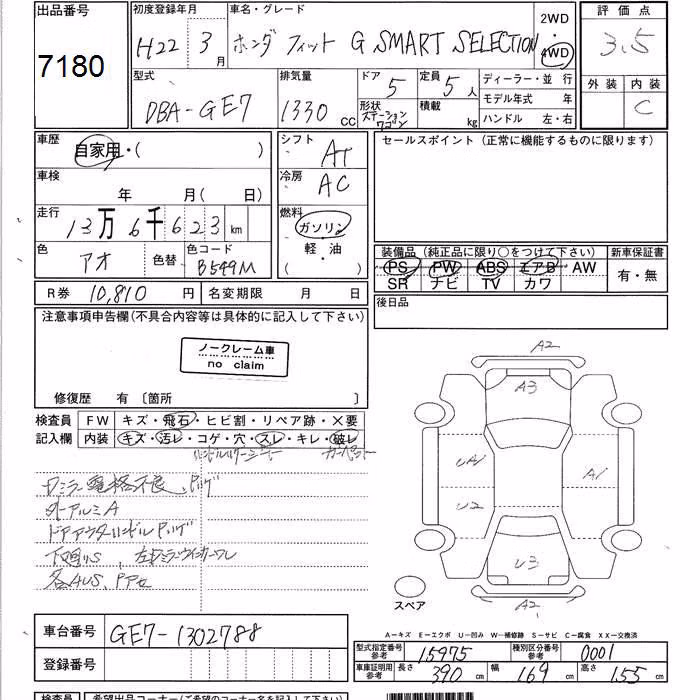 出品番号
7180
初度登録年月
H22 3月
車名・グレード
ホンダ フィット G SMART SELECTION
2WD
4WD
評価点
3.5
外装 内装
C
型式
DBA-GE7
排気量
1330 cc
ドア
5
形状
ステーションワゴン
定員
5人
積載
kg
ディーラー・並行
モデル年式 年
ハンドル 左・右
車歴
自家用・( )
車検
年 月(日)
走行
13万6千623km
色
アオ
色替
色コード
B549M
シフト
AT
冷房
AC
燃料
ガソリン
軽・油
( )
セールスポイント (正常に機能するものに限ります)
装備品 (純正品に限り○をつけて下さい)
PS PW ABS エアB AW
SR ナビ TV カワ
新車保証書
有・無
後日品
R券 10,810円 名変期限 月 日
注意事項申告欄(不具合内容等は具体的に記入して下さい)
ノークレーム車
no claim
修復歴 有 〔箇所 〕
検査員
記入欄
FW キズ・飛石・ヒビ割・リペア跡・×要
内装 キズ・汚レ・コゲ・穴・スレ・キレ・破レ
外アルミA
下回りS
A2
A3
A1
U2
U3
A2
スペア
A―キズ E―エクボ U―凹み W―補修跡 S―サビ C―腐食 XX―交換済
車台番号
GE7-1302788
登録番号
型式指定番号
参考
15975
種別区分番号
参考
0001
車庫証明用
参考
長さ 390cm 幅 169cm 高さ 155cm
検査員
希望出品コーナー(ご希望のコーナー名を記入して下さい)